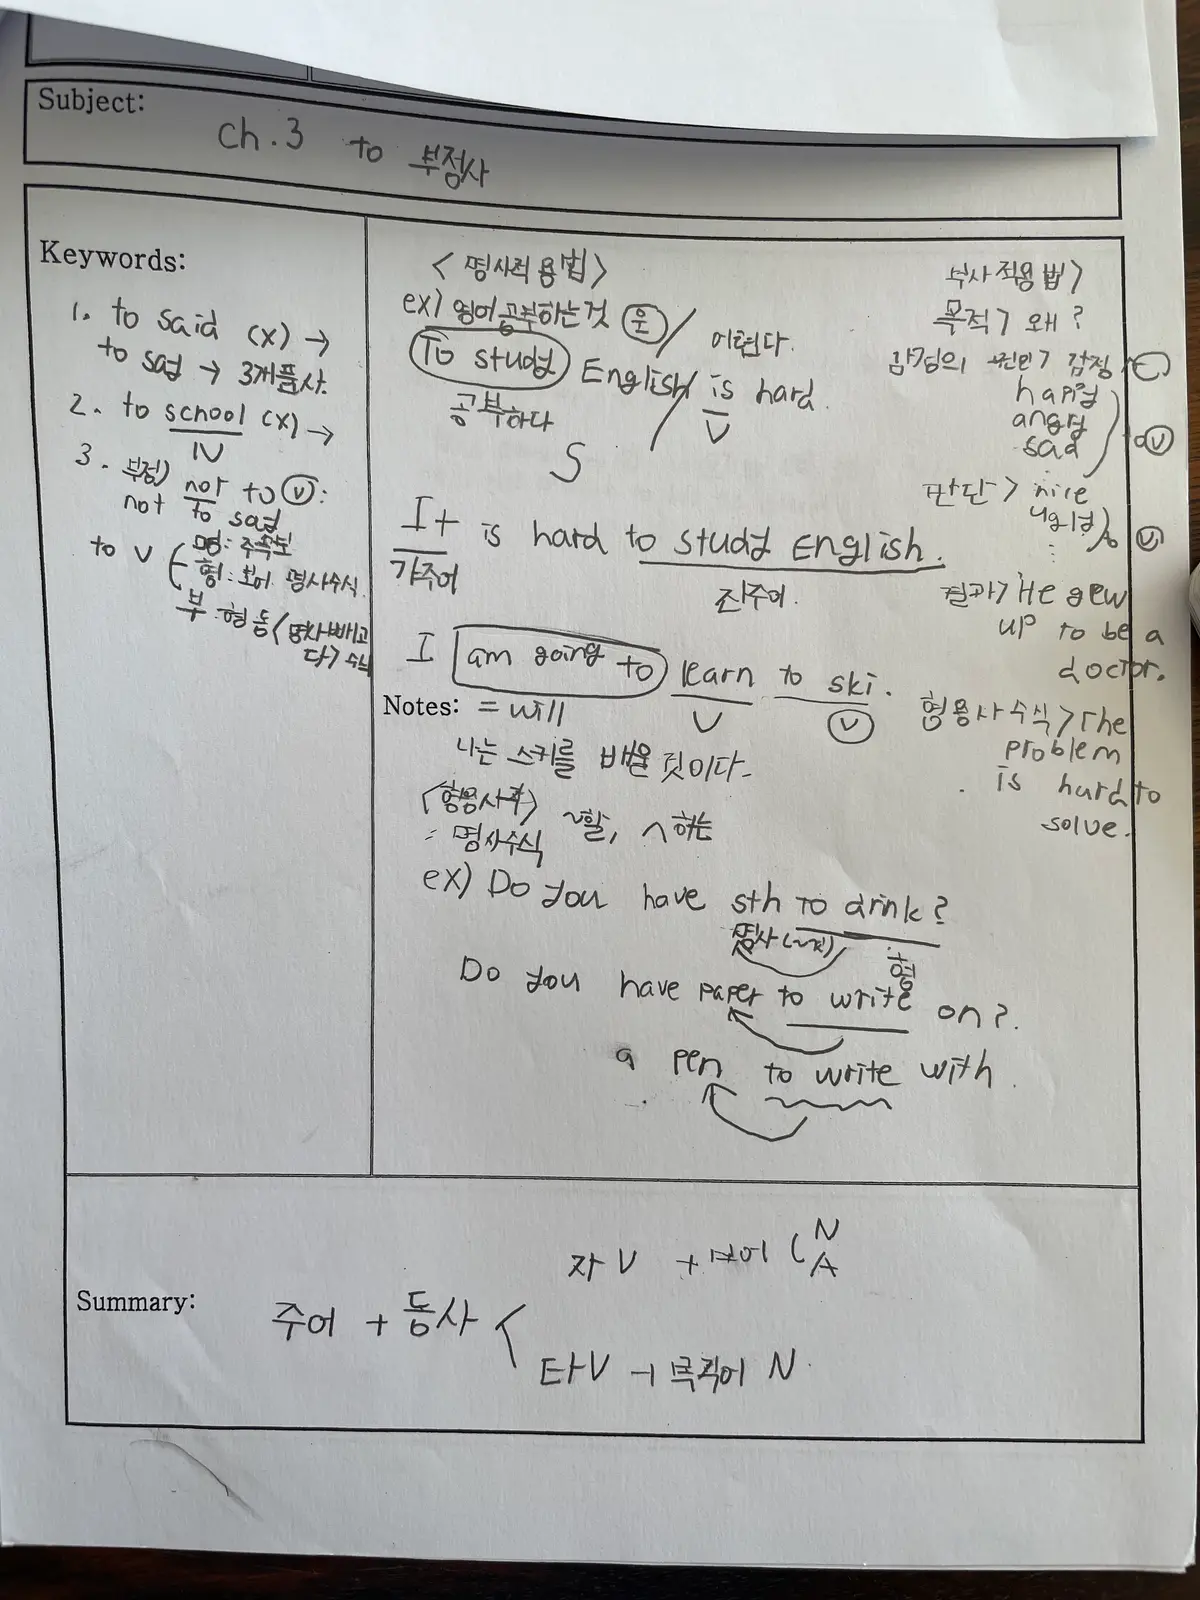 Subject:
ch.3 to 부정사
Keywords:
1. to said (x) →
to say → 3개품사.
2. to school (x) →
N
3. 부정) not to ⓥ:
not to say
to V 명: 주목보
형: 보어 명사수식.
부: 형동<명사빼고
다> 수식
<명사적용법>
ex) 영어공부하는것 은 / 어렵다.
To study English / is hard.
공부하다 V
S
It is hard to study English.
가주어 진주어.
I am going to learn to ski.
V ⓥ
Notes: = will
나는 스키를 배울 것이다.
<형용사적> ~할, ~하는
: 명사수식
ex) Do you have sth to drink?
명사(~것) 형
Do you have paper to write on?
a pen to write with.
부사적용법>
목적> 왜?
감정의 원인> 감정
happy
angry
sad
to ⓥ
판단> nice
ugly
to ⓥ
결과> He grew
up to be a
doctor.
형용사수식> The
problem
is hard to
solve.
Summary:
자V + 보어 ( N
A
주어 + 동사 <
타V + 목적어 N